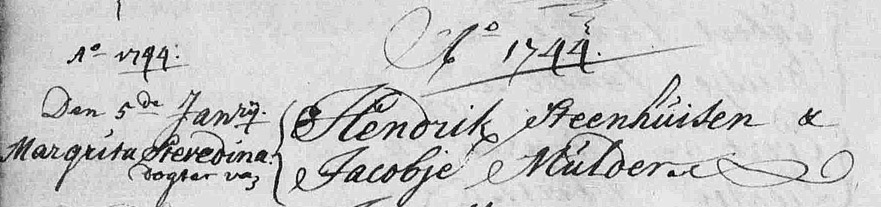 Aº 1744.
Aº 1744.
Den 5de Janrij.
Margrita Stevedina
dogter van
Hendrik Steenhuisen &
Jacobje Mulder